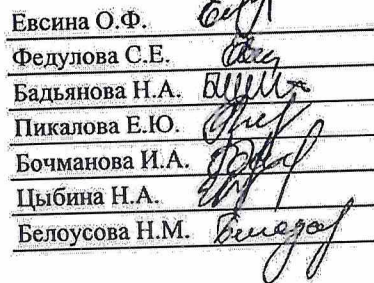 Евсина О.Ф.
Федулова С.Е.
Бадьянова Н.А.
Пикалова Е.Ю.
Бочманова И.А.
Цыбина Н.А.
Белоусова Н.М.